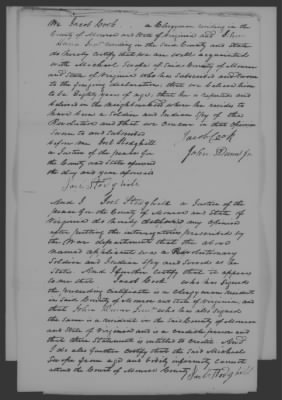 We Jacob Cook a Clergyman residing in the
County of Monroe and State of Virginia and John
Dunn Senr residing in the Said County and State
do hereby certify that we are well acquainted
with Michael Swope of Said County of Monroe
and State of Virginia who has Subscribed and Sworn
to the foregoing declaration, that we believe him
to be Eighty years of age; that he is reputed and
believed in the Neighborhood where he resides to
have been a Soldier and Indian Spy of the
Revolution and that we concur in that opinion
Sworn to and Subscribed
before me Joel Stodghill
a Justice of the peace for
the County and State aforesaid
the day and year aforesaid
Jacob Cook
John Dunn Sr
Joel Stodghill
And I Joel Stodghill a Justice of the
peace for the County of Monroe and State of
Virginia do hereby declare my opinion
after putting the interrogatories prescribed by
the War department that the above
named applicant was a Revolutionary
Soldier and Indian Spy and Served as he
States And I further certify that it appears
to me that Jacob Cook who has Signed
the preceding certificate is a Clergyman resident
in Said County of Monroe and State of Virginia and
that John Dunn Senr who has also signed
the Same is a resident in the Said County of Monroe
and State of Virginia and is a credible person and
that their Statement is entitled to credit And
I do also further certify that the Said Michael
Swope from age and bodily infirmity cannot
attend the Court of Monroe County
Joel Stodghill